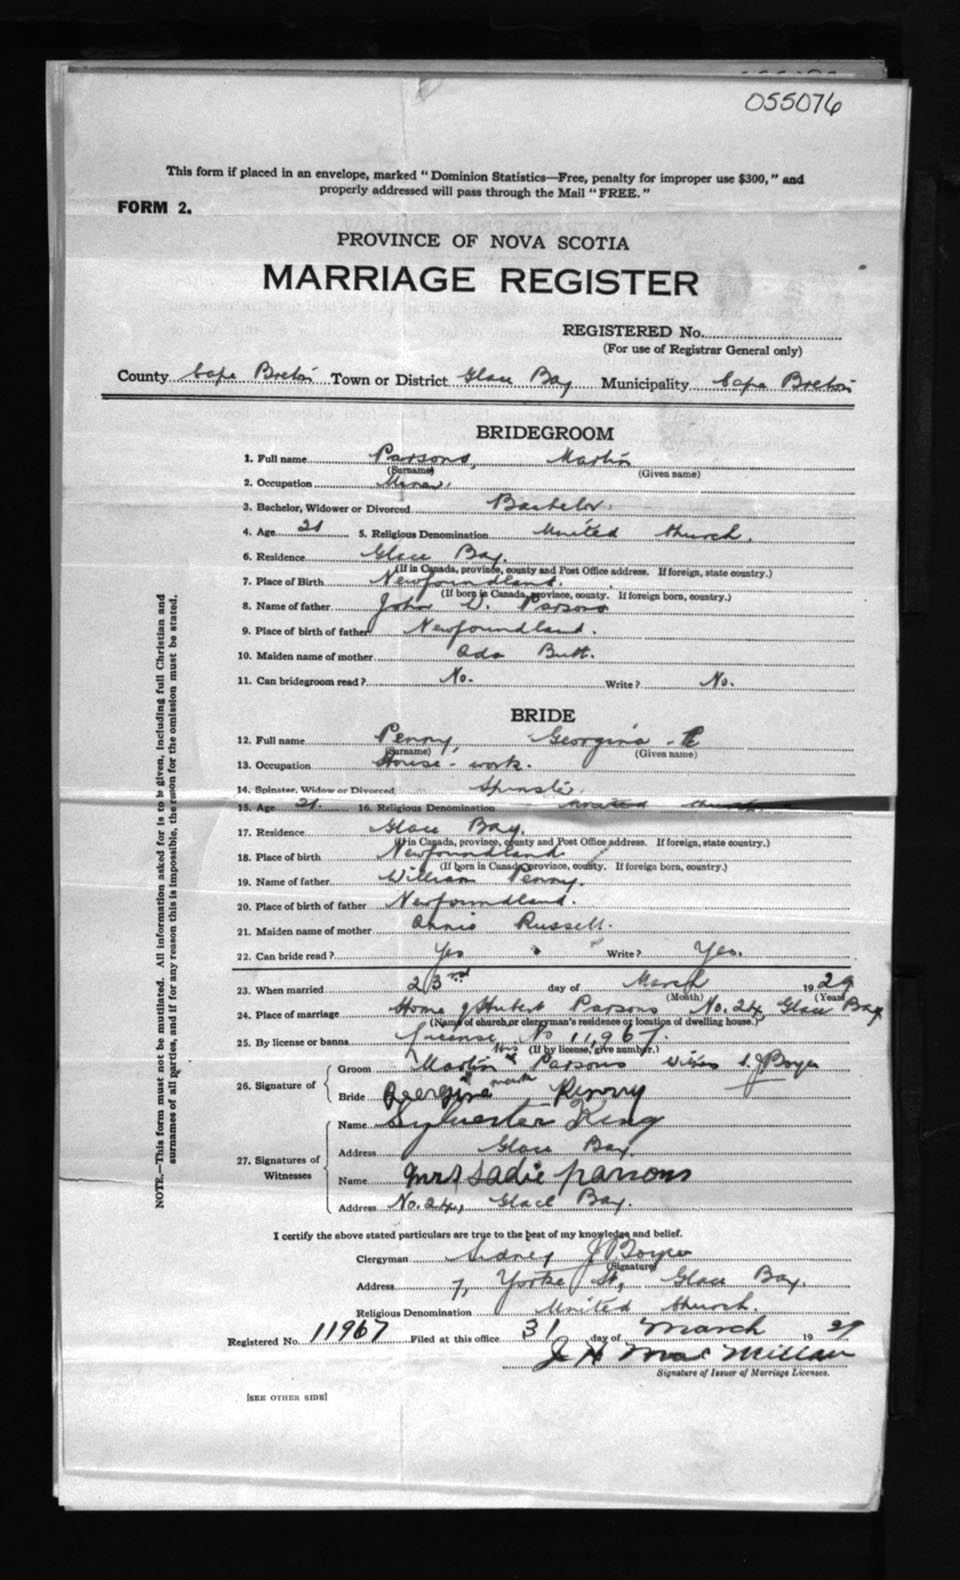 055076
This form if placed in an envelope, marked "Dominion Statistics—Free, penalty for improper use $300," and
properly addressed will pass through the Mail "FREE."
FORM 2.
PROVINCE OF NOVA SCOTIA
MARRIAGE REGISTER
REGISTERED No.
(For use of Registrar General only)
County Cape Breton Town or District Glace Bay Municipality Cape Breton
BRIDEGROOM
1. Full name Parsons, Martin
(Surname) (Given name)
2. Occupation Miner.
3. Bachelor, Widower or Divorced Bachelor.
4. Age 21 5. Religious Denomination United Church.
6. Residence Glace Bay.
(If in Canada, province, county and Post Office address. If foreign, state country.)
7. Place of Birth Newfoundland.
(If born in Canada, province, county. If foreign born, country.)
8. Name of father John D. Parsons
9. Place of birth of father Newfoundland.
10. Maiden name of mother Ada Butt.
11. Can bridegroom read? No. Write? No.
BRIDE
12. Full name Penny, Georgina
(Surname) (Given name)
13. Occupation House-work.
14. Spinster, Widow or Divorced Spinster.
15. Age 21. 16. Religious Denomination United Church.
17. Residence Glace Bay.
(If in Canada, province, county and Post Office address. If foreign, state country.)
18. Place of birth Newfoundland
(If born in Canada, province, county. If foreign born, country.)
19. Name of father William Penny.
20. Place of birth of father Newfoundland.
21. Maiden name of mother Annie Russell.
22. Can bride read? Yes Write? Yes.
23. When married 23rd day of March 1929
(Month) (Year)
24. Place of marriage Home of Hubert Parsons No. 24, Glace Bay
(Name of church or clergyman's residence or location of dwelling house.)
25. By license or banns License No 11,967.
(If by license, give number.)
26. Signature of
Groom Martin his x mark Parsons S. J Boyce
Bride Georgina Penny
27. Signatures of Witnesses
Name Sylvester King
Address Glace Bay.
Name Mrs Sadie Parsons
Address No. 24, Glace Bay.
I certify the above stated particulars are true to the best of my knowledge and belief.
Clergyman Sidney J Boyce
(Signature)
Address 7, Yorke St, Glace Bay.
Religious Denomination United Church.
Registered No. 11967 Filed at this office 31 day of March 1929
J H MacMillan
Signature of Issuer of Marriage Licenses.
[SEE OTHER SIDE]
NOTE.—This form must not be mutilated. All information asked for is to be given, including full Christian and
surnames of all parties, and if for any reason this is impossible, the reason for the omission must be stated.